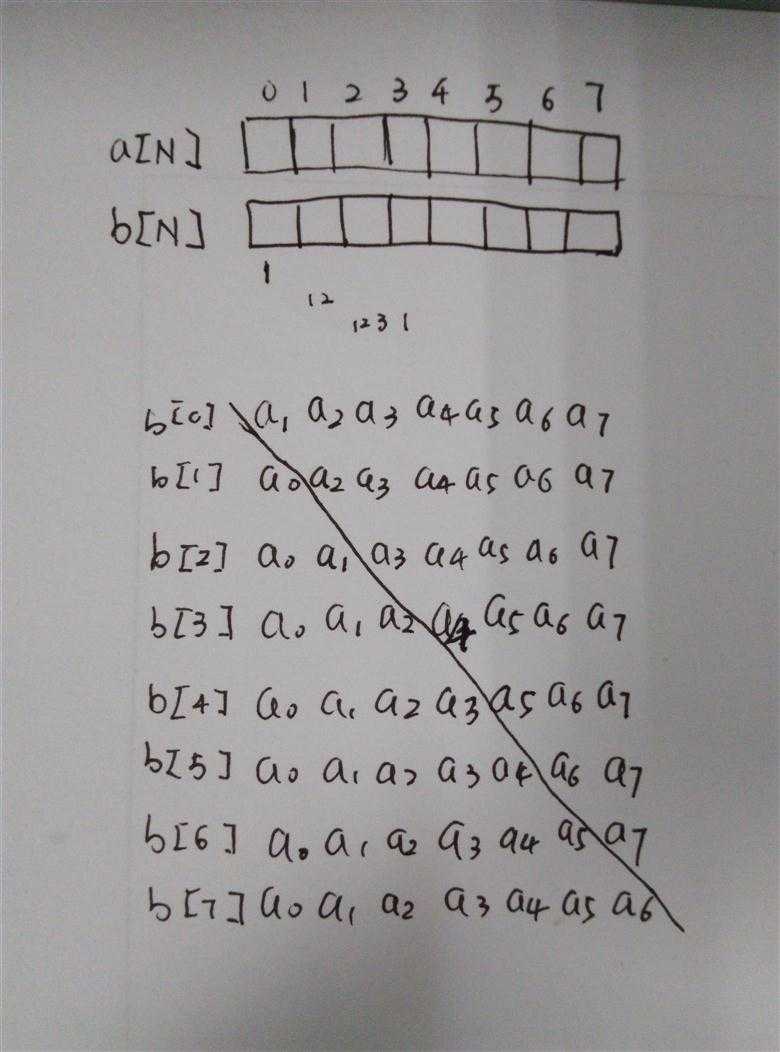 0 1 2 3 4 5 6 7
a[N]
b[N]
1
12
123 1
b[0] a1 a2 a3 a4 a5 a6 a7
b[1] a0 a2 a3 a4 a5 a6 a7
b[2] a0 a1 a3 a4 a5 a6 a7
b[3] a0 a1 a2 a4 a5 a6 a7
b[4] a0 a1 a2 a3 a5 a6 a7
b[5] a0 a1 a2 a3 a4 a6 a7
b[6] a0 a1 a2 a3 a4 a5 a7
b[7] a0 a1 a2 a3 a4 a5 a6